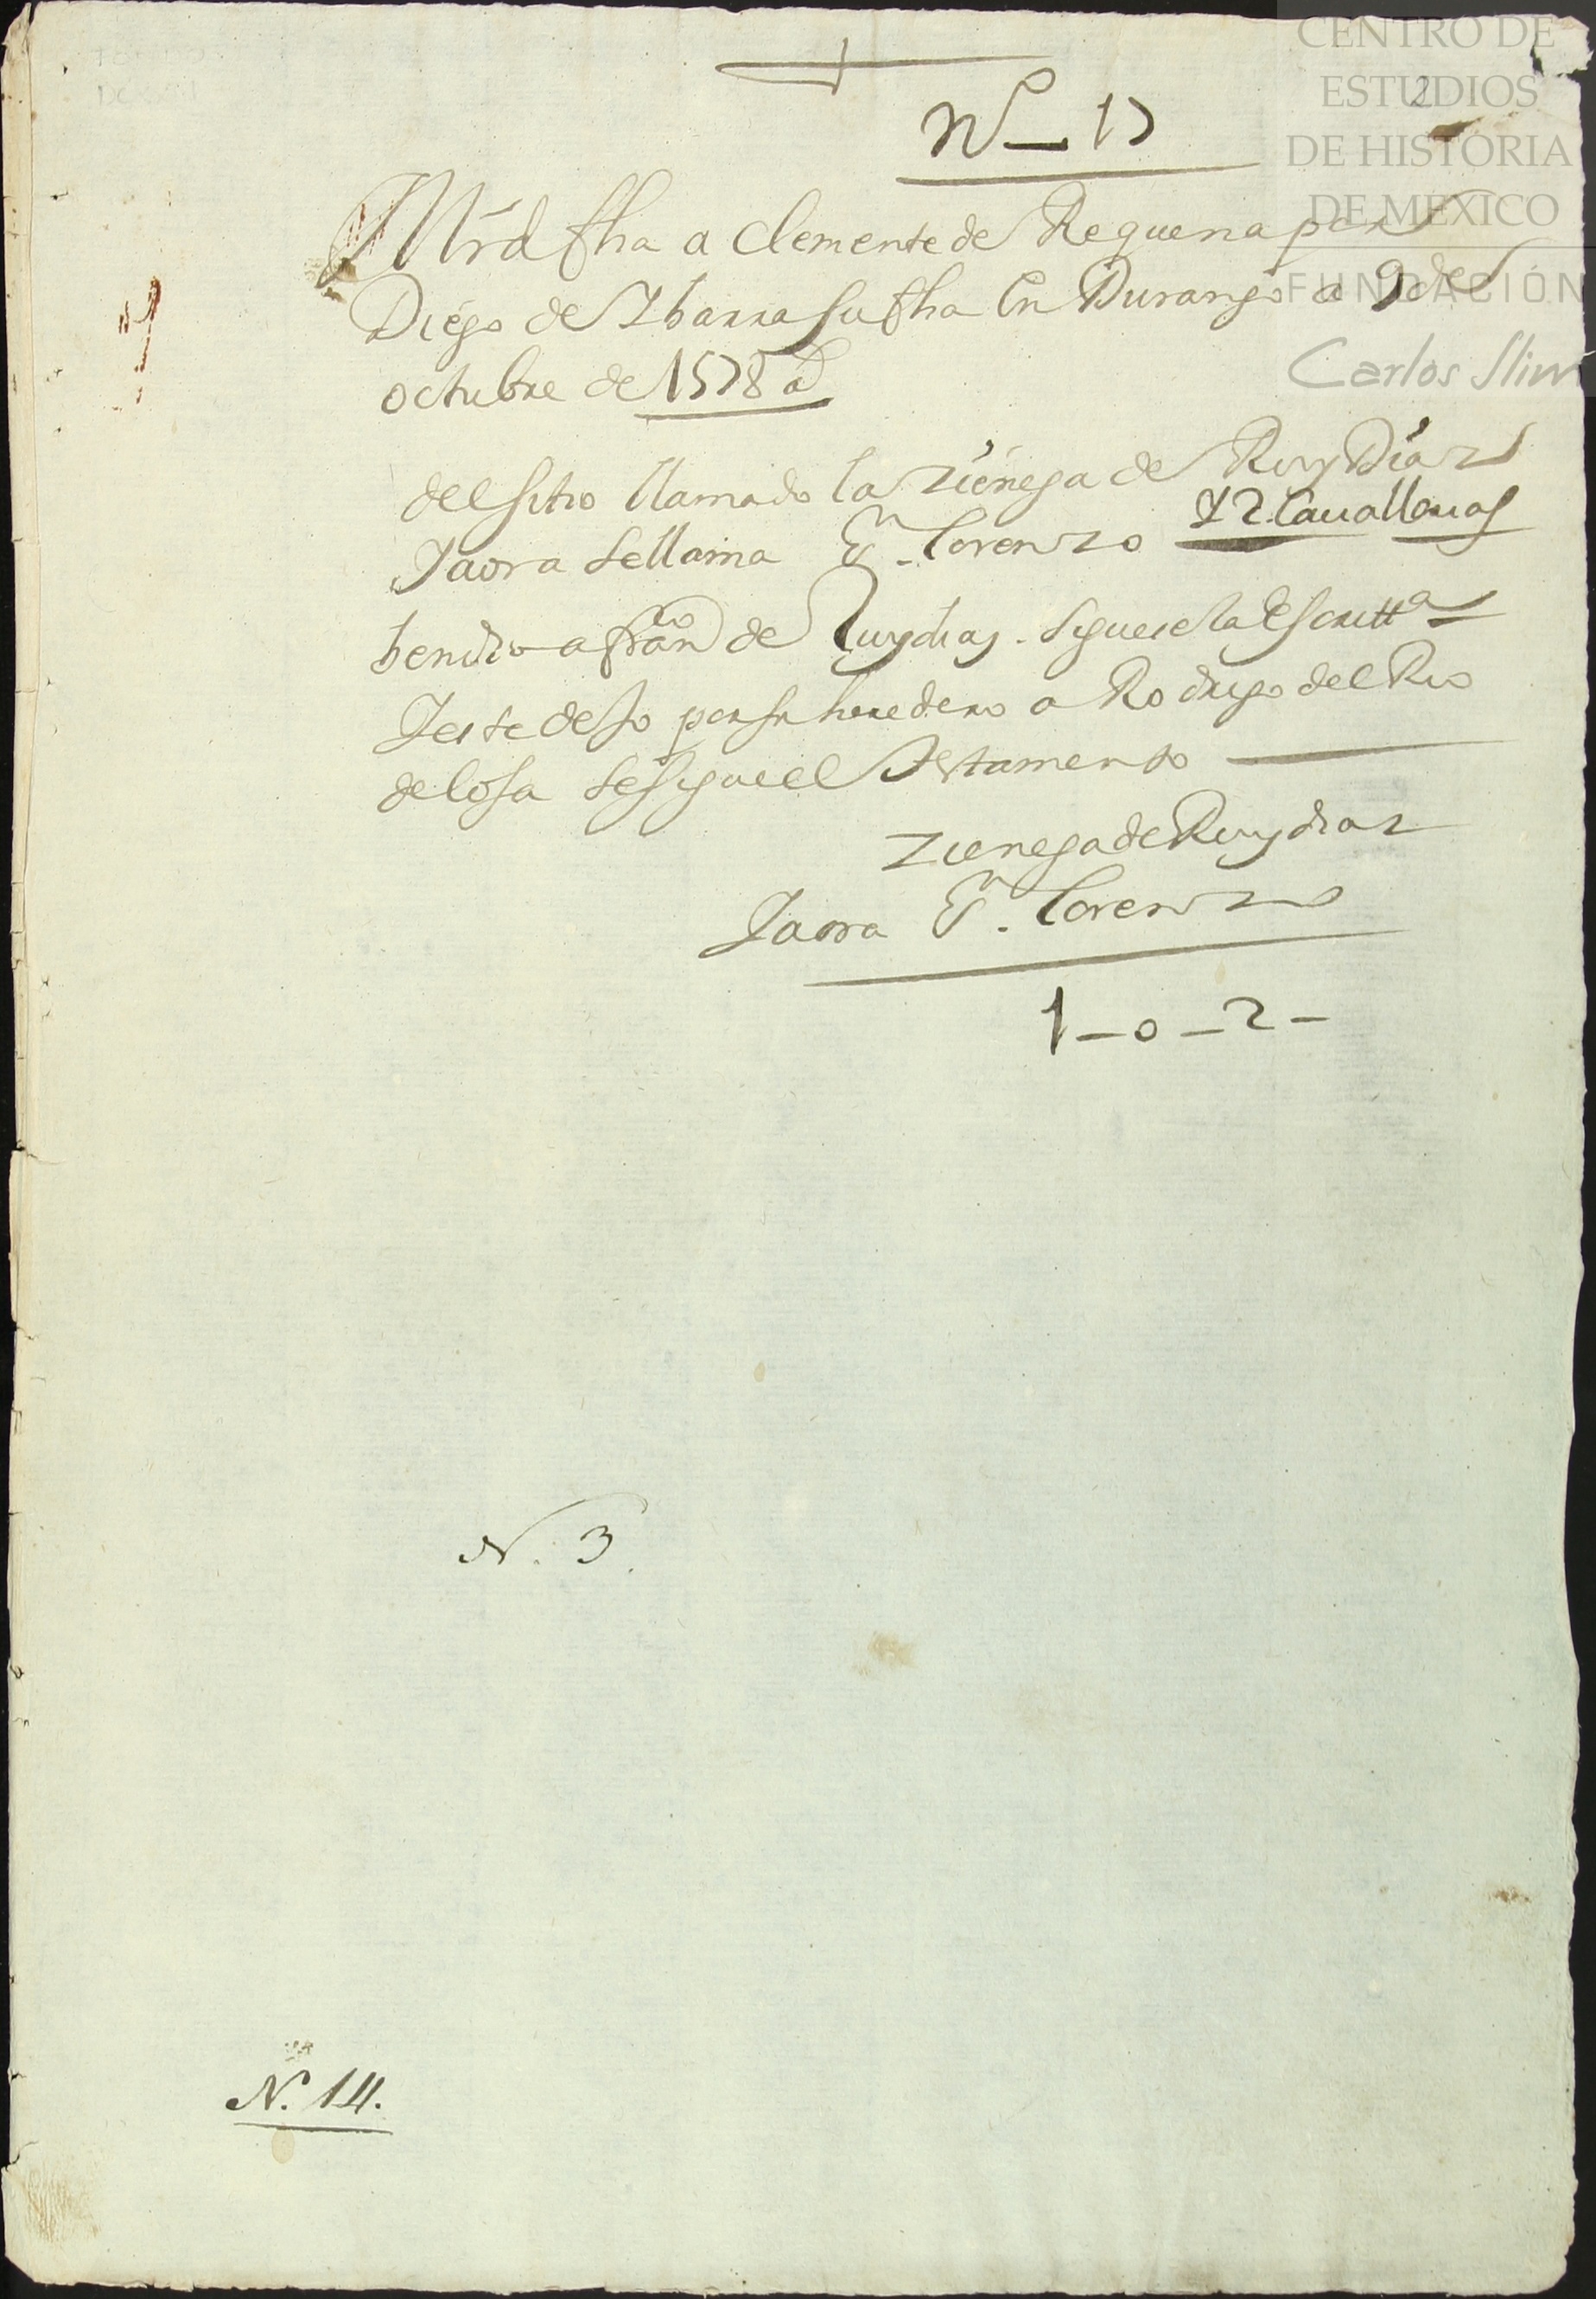 CENTRO DE
ESTUDIOS
DE HISTORIA
DE MEXICO
FUNDACIÓN
Carlos Slim
2
Nº 17
Mrd fha a Clemente de Requena por
Diego de Ybarra su fha en Durango a 9 de
octubre de 1578 a
del sitio llamado la zienega de Ruy Diaz
Jaora se llama Sn. Lorenzo 12 Cauallerias
bendio a franco de Ruydias. siguese la escritta
J este dejo por su heredero a Rodrigo del Rio
de losa se sigue el testamento
zienega de Ruy diaz
Jaora Sn. Lorenzo
1-0-2-
N. 3.
N. 14.